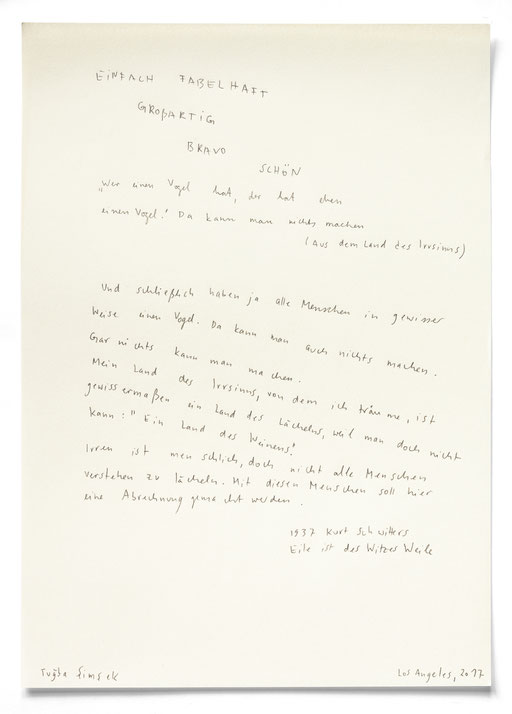 EINFACH FABELHAFT
GROßARTIG
BRAVO
SCHÖN
"Wer einen Vogel hat, der hat eben
einen Vogel." Da kann man nichts machen
(Aus dem Land des Irrsinns)
Und schließlich haben ja alle Menschen in gewisser
Weise einen Vogel. Da kann man auch nichts machen.
Gar nichts kann man machen.
Mein Land des Irrsinns, von dem ich träume, ist
gewissermaßen ein Land des Lächelns, weil man doch nicht
kann: "Ein Land des Weinens."
Irren ist menschlich, doch nicht alle Menschen
verstehen zu lächeln. Mit diesen Menschen soll hier
eine Abrechnung gemacht werden.
1937 Kurt Schwitters
Eile ist des Witzes Weile
Tuğba Şimşek
Los Angeles, 2017